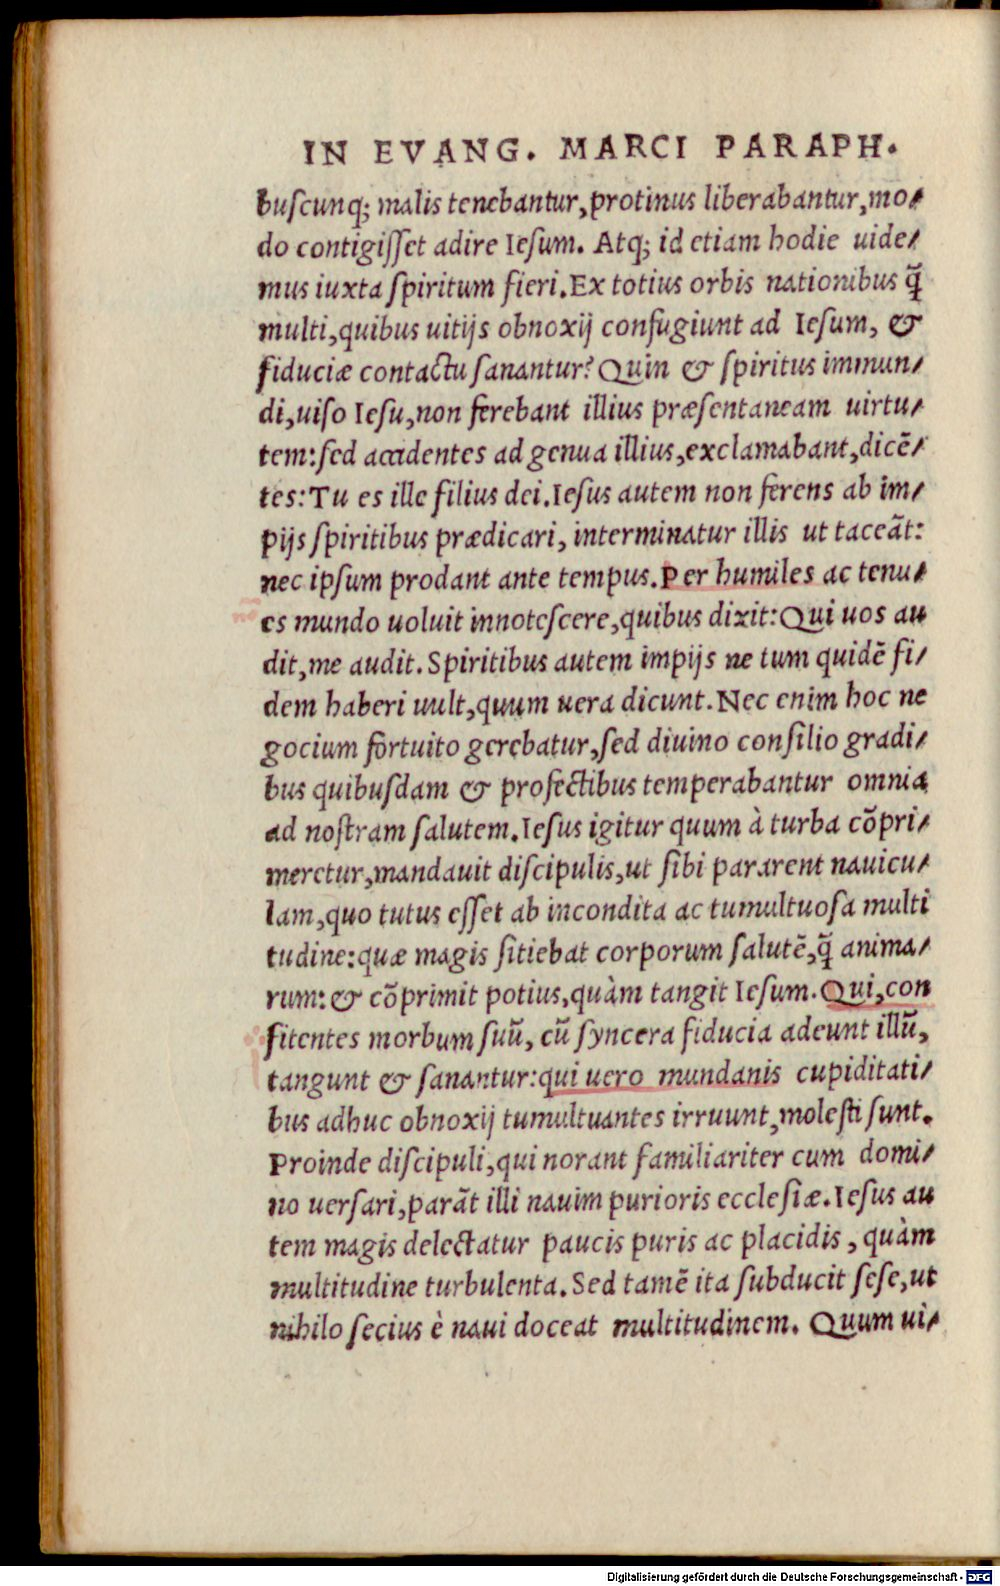 IN EVANG. MARCI PARAPH.
buſcunq; malis tenebantur, protinus liberabantur, mo⸗
do contigiſſet adire Ieſum. Atq; id etiam hodie uide⸗
mus iuxta ſpiritum fieri. Ex totius orbis nationibus q̃
multi, quibus uitijs obnoxij confugiunt ad Ieſum, &
fiduciæ contactu ſanantur? Quin & ſpiritus immun⸗
di, uiſo Ieſu, non ferebant illius præſentaneam uirtu⸗
tem: ſed accidentes ad genua illius, exclamabant, dicẽ⸗
tes: Tu es ille filius dei. Ieſus autem non ferens ab im⸗
pijs ſpiritibus prædicari, interminatur illis ut taceãt:
nec ipſum prodant ante tempus. Per humiles ac tenu⸗
es mundo uoluit innoteſcere, quibus dixit: Qui uos au
dit, me audit. Spiritibus autem impijs ne tum quidẽ fi⸗
dem haberi uult, quum uera dicunt. Nec enim hoc ne
gocium fortuito gerebatur, ſed diuino conſilio gradi⸗
bus quibuſdam & profectibus temperabantur omnia
ad noſtram ſalutem. Ieſus igitur quum à turba cõpri⸗
meretur, mandauit diſcipulis, ut ſibi pararent nauicu⸗
lam, quo tutus eſſet ab incondita ac tumultuoſa multi
tudine: quæ magis ſitiebat corporum ſalutẽ, q̃ anima⸗
rum: & cõprimit potius, quàm tangit Ieſum. Qui, con
fitentes morbum ſuũ, cũ ſyncera fiducia adeunt illũ,
tangunt & ſanantur: qui uero mundanis cupiditati⸗
bus adhuc obnoxij tumultuantes irruunt, moleſti ſunt.
Proinde diſcipuli, qui norant familiariter cum domi⸗
no uerſari, parãt illi nauim purioris eccleſiæ. Ieſus au
tem magis delectatur paucis puris ac placidis, quàm
multitudine turbulenta. Sed tamẽ ita ſubducit ſeſe, ut
nihilo ſecius è naui doceat multitudinem. Quum ui⸗
Digitalisierung gefördert durch die Deutsche Forschungsgemeinschaft - DFG